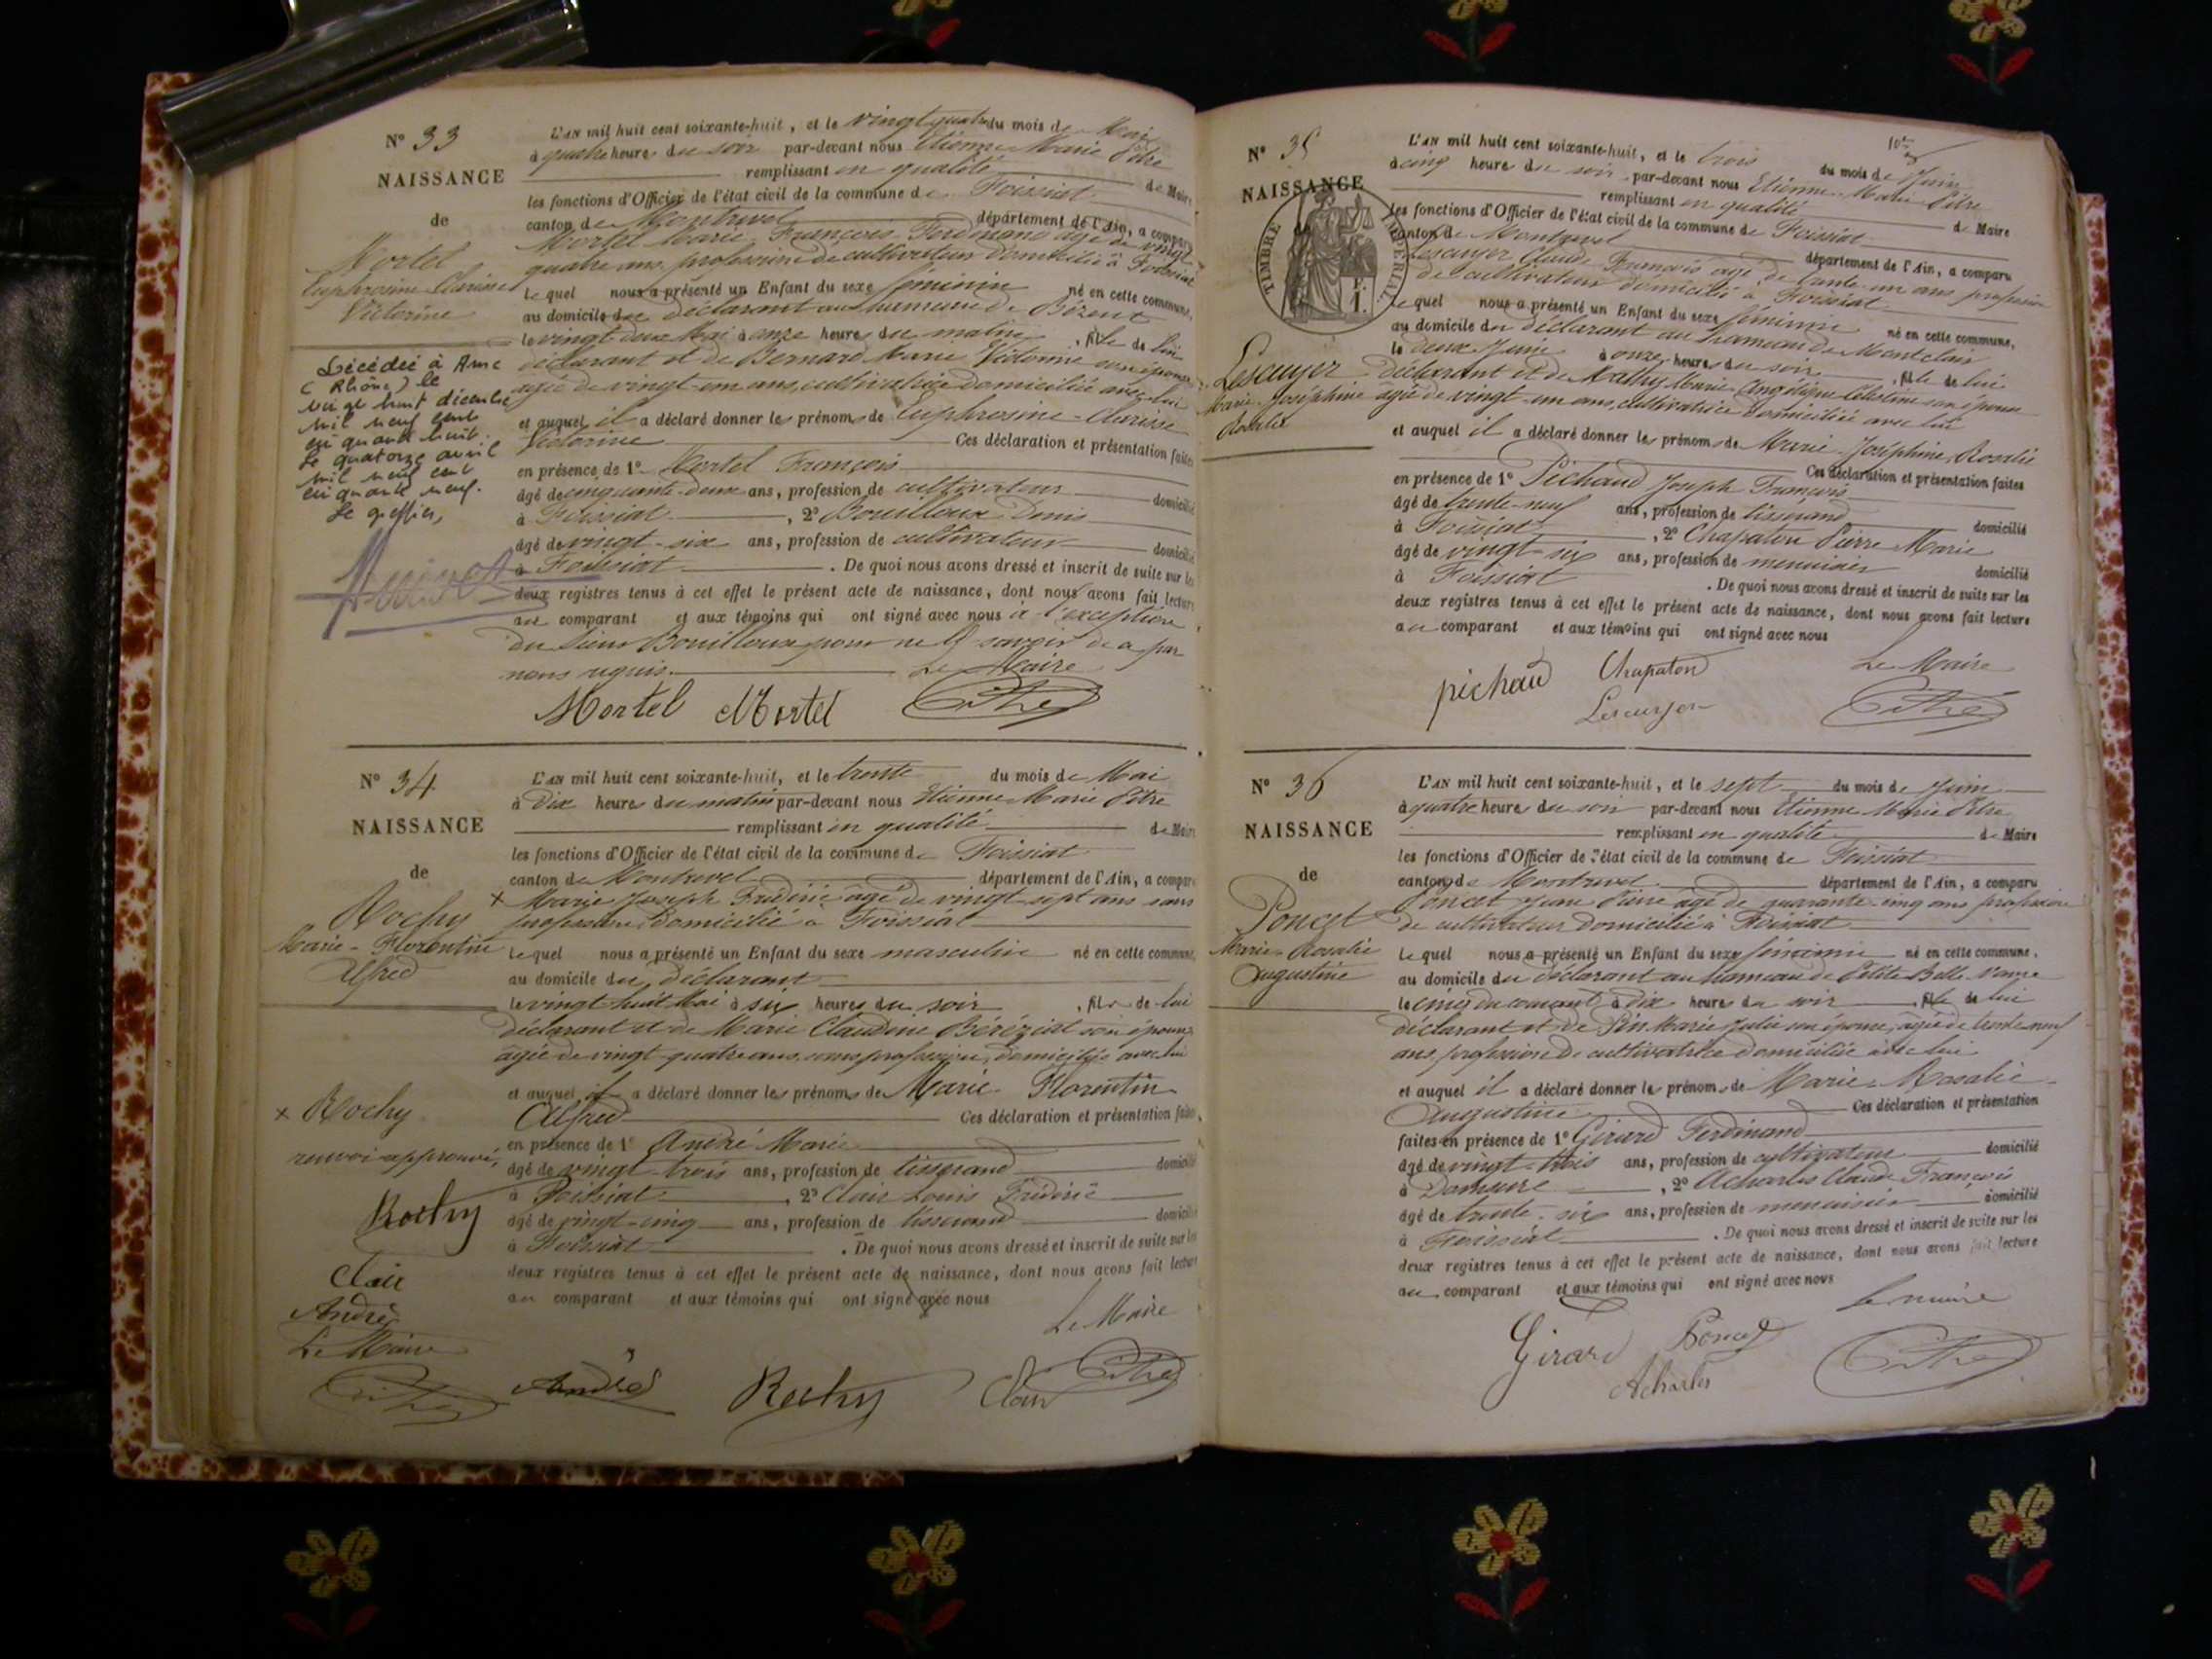 N° 33
NAISSANCE
de
Mortel
Euphrosine Clarisse
Victorine
Décédée à
(Rhône) le
vingt huit décembre
mil neuf cent
cinquante huit.
Le quatorze avril
mil neuf cent
cinquante neuf.
Le greffier,
L'AN mil huit cent soixante-huit, et le vingt quatre du mois de Mai
à quatre heures du soir par-devant nous Etienne Marie Pitre
remplissant en qualité de Maire
les fonctions d'Officier de l'état civil de la commune de Foissiat
canton de Montrevel département de l'Ain, a comparu
Mortel Marie François Ferdinand âgé de vingt
quatre ans, profession de cultivateur domicilié à Foissiat
Lequel nous a présenté un Enfant du sexe féminin né en cette commune,
au domicile du déclarant au hameau de
le vingt deux Mai à onze heures du matin, fille de lui
déclarant et de Bernard Marie Victorine son épouse
âgée de vingt-un ans, cultivatrice domiciliée avec lui
et auquel il a déclaré donner les prénoms de Euphrosine - Clarisse
Victorine Ces déclaration et présentation faites
en présence de 1° Mortel François
âgé de cinquante-deux ans, profession de cultivateur domicilié
à Foissiat, 2° Bouilloux Denis
âgé de vingt-six ans, profession de cultivateur domicilié
à Foissiat. De quoi nous avons dressé et inscrit de suite sur les
deux registres tenus à cet effet le présent acte de naissance, dont nous avons fait lecture
au comparant et aux témoins qui ont signé avec nous à l'exception
du sieur Bouilloux pour ne le savoir de a par
nous requis. Le Maire
Mortel Mortel Pitre
N° 34
NAISSANCE
de
Rochy
Marie-Florentin
Alfred
x Rochy
renvoi approuvé,
Rochy
Clair
André
Le Maire
Pitre
L'AN mil huit cent soixante-huit, et le trente du mois de Mai
à Dix heures du matin par-devant nous Etienne Marie Pitre
remplissant en qualité de Maire
les fonctions d'Officier de l'état civil de la commune de Foissiat
canton de Montrevel département de l'Ain, a comparu
x Marie Joseph Frédéric âgé de vingt-sept ans sans
profession, domicilié à Foissiat
Lequel nous a présenté un Enfant du sexe masculin né en cette commune,
au domicile du déclarant
le vingt-huit Mai à six heures du soir, fils de lui
déclarant et de Marie Claudine Bérézial son épouse
âgée de vingt-quatre ans, sans profession, domiciliée avec lui
et auquel il a déclaré donner les prénoms de Marie Florentin
Alfred Ces déclaration et présentation faites
en présence de 1° André Marie
âgé de vingt-trois ans, profession de tisserand domicilié
à Foissiat, 2° Clair Louis Frédéric
âgé de vingt-cinq ans, profession de tisserand domicilié
à Foissiat. De quoi nous avons dressé et inscrit de suite sur les
deux registres tenus à cet effet le présent acte de naissance, dont nous avons fait lecture
au comparant et aux témoins qui ont signé avec nous
Le Maire
André Rochy Clair Pitre
N° 35
NAISSANCE
TIMBRE IMPÉRIAL
1 F.
Lescuyer
Marie-Joséphine
Rosalie
L'AN mil huit cent soixante-huit, et le trois du mois de Juin
à cinq heures du soir par-devant nous Etienne Marie Pitre
remplissant en qualité de Maire
les fonctions d'Officier de l'état civil de la commune de Foissiat
canton de Montrevel département de l'Ain, a comparu
Lescuyer Claude François âgé de trente-un ans profession
de cultivateur domicilié à Foissiat
Lequel nous a présenté un Enfant du sexe féminin né en cette commune,
au domicile du déclarant au hameau de Montclair
le deux Juin à onze heures du soir, fille de lui
déclarant et de Mathy Marie Angélique Célestine son épouse
âgée de vingt-un ans, cultivatrice domiciliée avec lui
et auquel il a déclaré donner les prénoms de Marie-Joséphine Rosalie
Ces déclaration et présentation faites
en présence de 1° Pichaud Joseph François
âgé de trente-neuf ans, profession de tisserand domicilié
à Foissiat, 2° Chapalon Pierre Marie
âgé de vingt-six ans, profession de menuisier domicilié
à Foissiat. De quoi nous avons dressé et inscrit de suite sur les
deux registres tenus à cet effet le présent acte de naissance, dont nous avons fait lecture
au comparant et aux témoins qui ont signé avec nous
Pichaud Chapalon Le Maire
Lescuyer Pitre
N° 36
NAISSANCE
de
Poncet
Marie-Rosalie
Augustine
L'AN mil huit cent soixante-huit, et le sept du mois de Juin
à quatre heures du soir par-devant nous Etienne Marie Pitre
remplissant en qualité de Maire
les fonctions d'Officier de l'état civil de la commune de Foissiat
canton de Montrevel département de l'Ain, a comparu
Poncet Jean Pierre âgé de quarante-cinq ans profession
de cultivateur domicilié à Foissiat
Lequel nous a présenté un Enfant du sexe féminin né en cette commune,
au domicile du déclarant au hameau de Petite Belle
le cinq du courant à dix heures du soir, fille de lui
déclarant et de Pin Marie Julie son épouse, âgée de trente-neuf
ans, profession de cultivatrice domiciliée avec lui
et auquel il a déclaré donner les prénoms de Marie-Rosalie
Augustine Ces déclaration et présentation
faites en présence de 1° Girard Ferdinand
âgé de vingt-trois ans, profession de cultivateur domicilié
à Domsure, 2° Acharles Claude François
âgé de trente-six ans, profession de menuisier domicilié
à Foissiat. De quoi nous avons dressé et inscrit de suite sur les
deux registres tenus à cet effet le présent acte de naissance, dont nous avons fait lecture
au comparant et aux témoins qui ont signé avec nous
Girard Poncet Le maire
Acharles Pitre